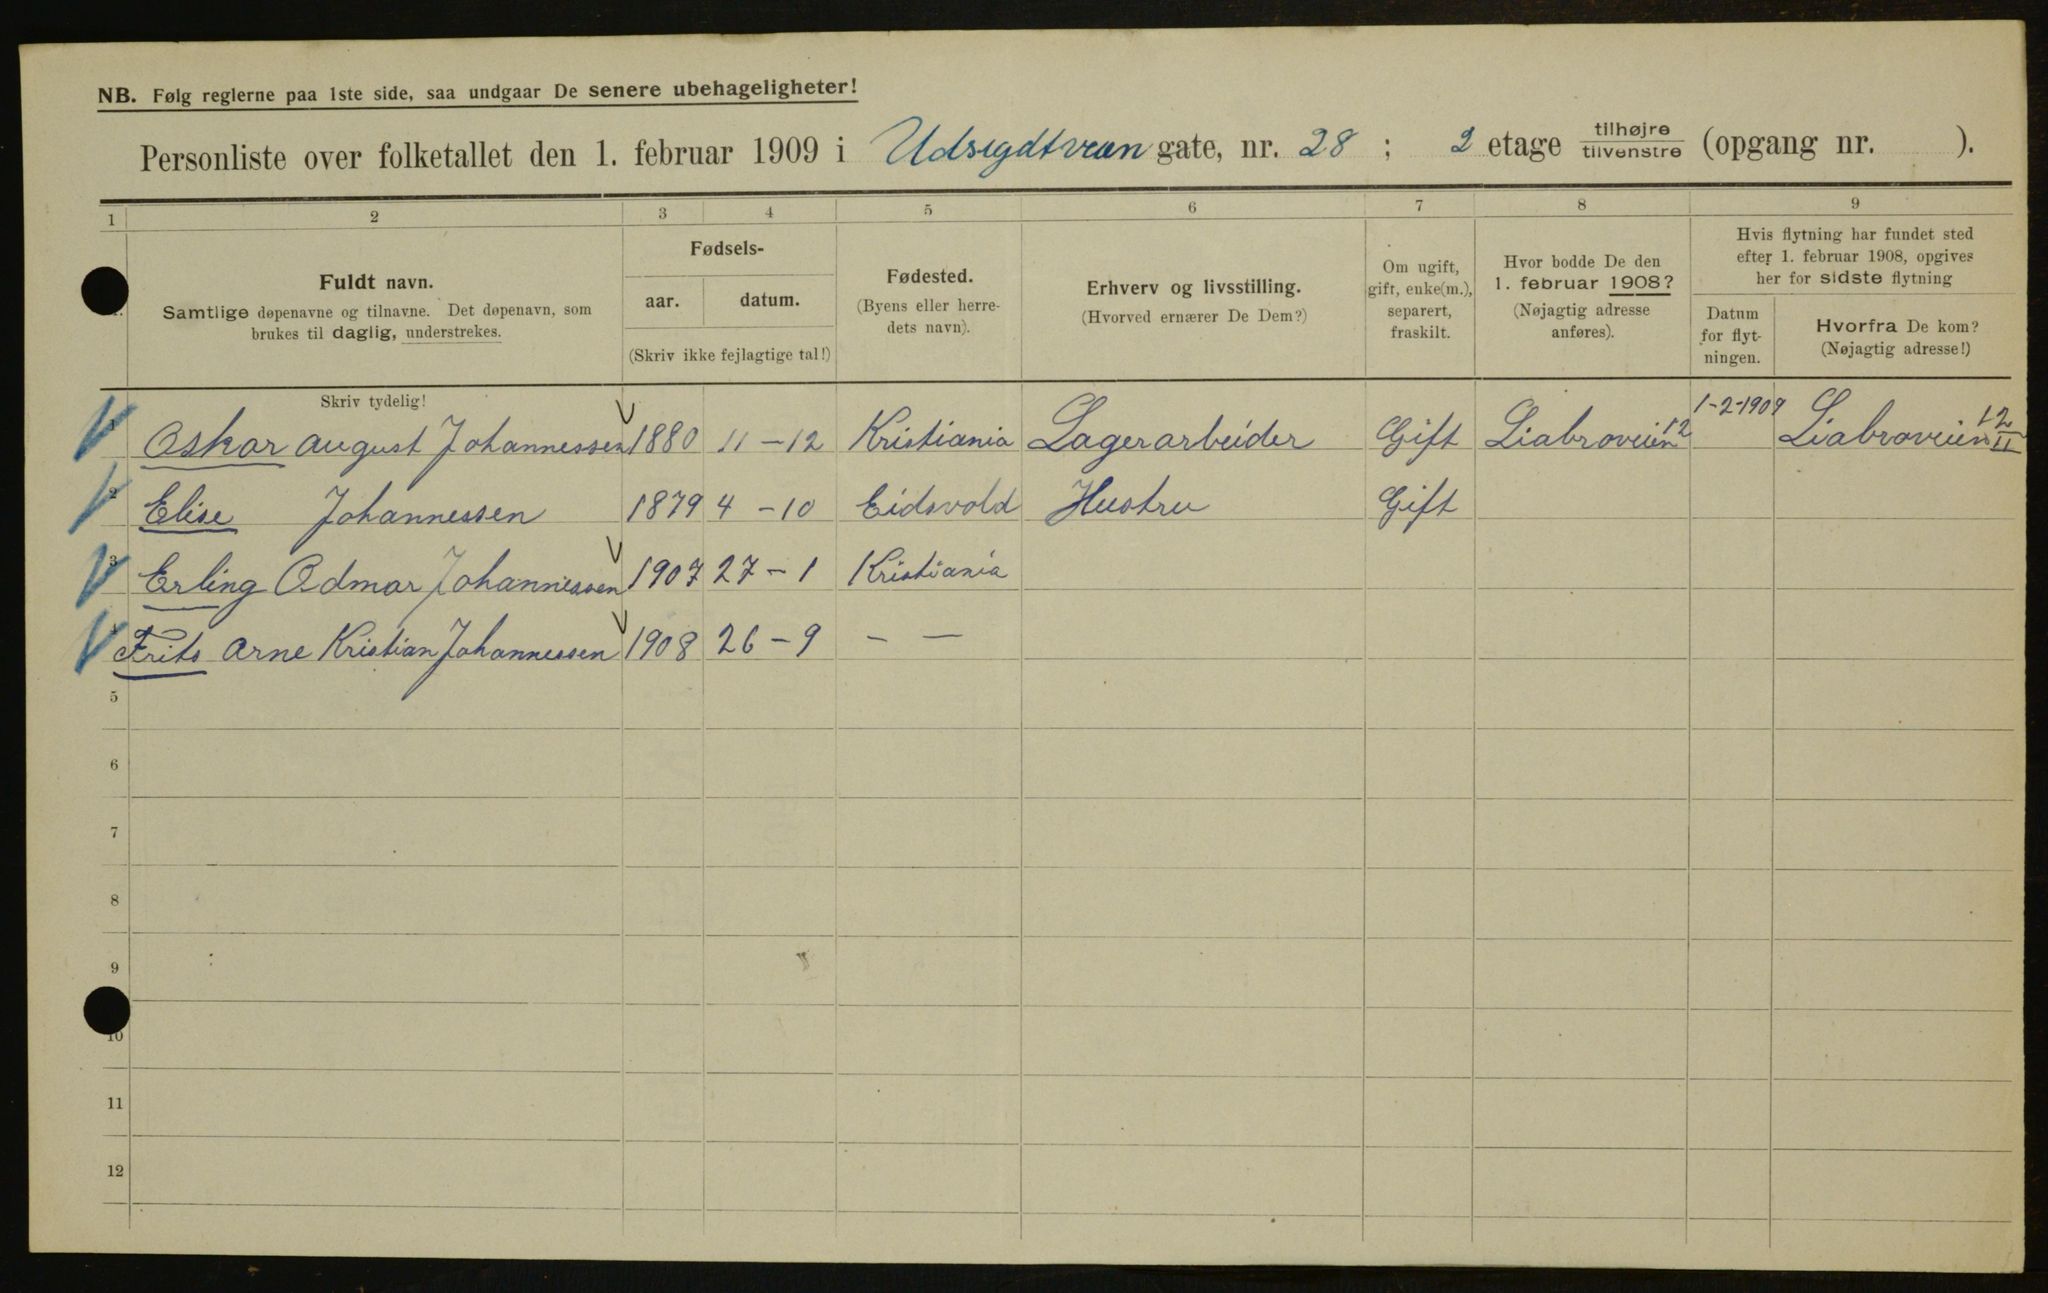 NB. Følg reglerne paa 1ste side, saa undgaar De senere ubehageligheter!
Personliste over folketallet den 1. februar 1909 i Udsigdtveien gate, nr. 28 ; 2 etage tilhøjre / tilvenstre (opgang nr. ).
1 2 3 4 5 6 7 8 9
Fuldt navn.
Samtlige døpenavne og tilnavne. Det døpenavn, som
brukes til daglig, understrekes.
Fødsels-
aar. datum.
(Skriv ikke fejlagtige tal!)
Fødested.
(Byens eller herre-
dets navn).
Erhverv og livsstilling.
(Hvorved ernærer De Dem?)
Om ugift,
gift, enke(m.),
separert,
fraskilt.
Hvor bodde De den
1. februar 1908?
(Nøjagtig adresse
anføres).
Hvis flytning har fundet sted
efter 1. februar 1908, opgives
her for sidste flytning
Datum
for flyt-
ningen.
Hvorfra De kom?
(Nøjagtig adresse!)
Skriv tydelig!
1 Oskar august Johannessen 1880 11-12 Kristiania Lagerarbeider Gift Liabroveien 12 1-2-1909 Liabroveien 12/II
2 Elise Johannessen 1879 4-10 Eidsvold Hustru Gift
3 Erling Odmar Johannessen 1907 27-1 Kristiania
4 Frits Arne Kristian Johannessen 1908 26-9 — —
5
6
7
8
9
10
11
12